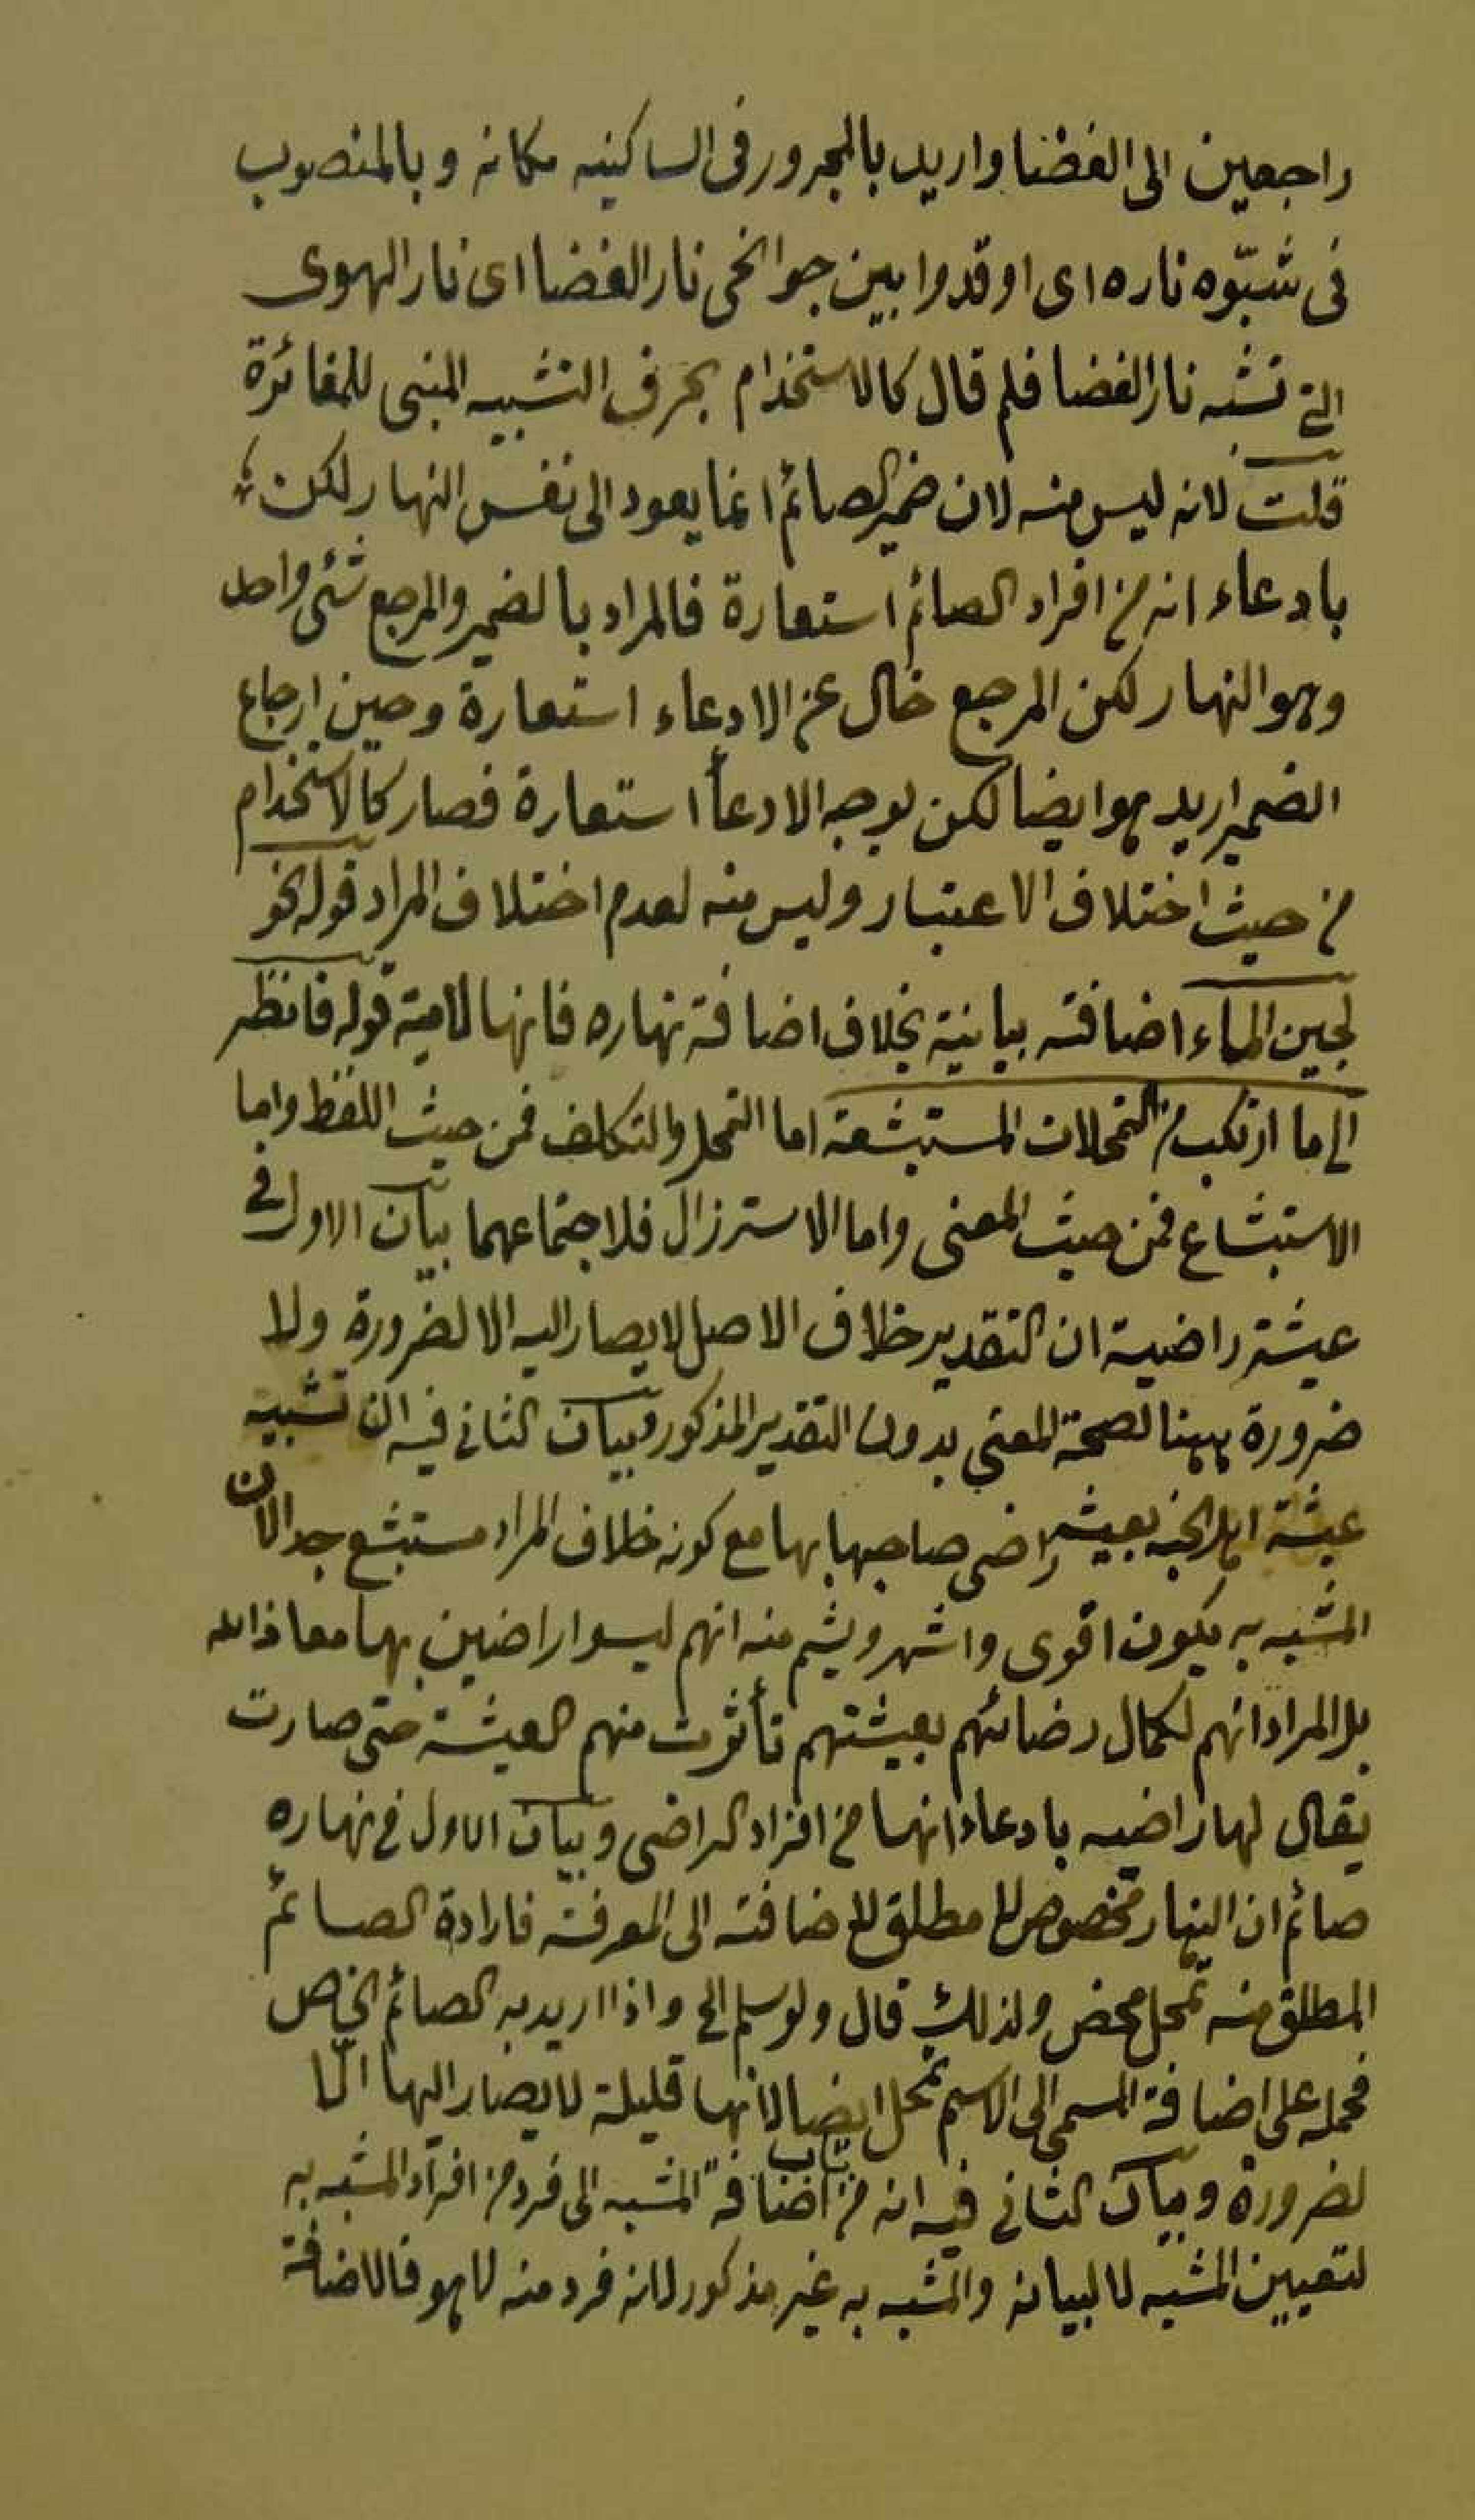 راجعين الى الغضا واريد بالمجرور فى الساكنيه مكانه وبالمنصوب
فى شبّوه ناره اى اوقدوا بين جوانحى نار الغضا اى نار الهوى
التى تشبه نار الغضا فلم قال كالاستخذام بحرف التشبيه المنبى للمغائرة
قلت لانه ليس منه لان ضمير الصائم انما يعود الى نفس النهار لكن
بادعاء انه من افراد الصائم استعارة فالمراد بالضمير والمرجع شئى واحد
وهو النهار لكن المرجع خال عن الادعاء استعارة وحين ارجاع
الضمير اريد هو ايضا لكن بوجه الادعأ استعارة فصار كالاستخدام
من حيث اختلاف الاعتبار وليس منه لعدم اختلاف المراد قوله نحو
لجين الماء اضافته بيانية بخلاف اضافة نهاره فانها لامية قوله فانظر
الى ما ارتكب من التمحلات المستبشعة اما التمحل والتكلف فمن حيث اللفظ واما
الاستبشاع فمن حيث المعنى واما الاسترزال فلاجتماعهما بيان الاول فى
عيشة راضية ان التقدير خلاف الاصل لا يصار اليه الا لضرورة ولا
ضرورة ههنا لصحة المعنى بدون التقدير المذكور وبيان الثانى فيه ان تشبيه
عيشة اهل الجنه بعيشة راضى صاحبها بها مع كونه خلاف المراد مستبشع جدا لان
المشبه به يكون اقوى واشهر ويشم منه انهم ليسوا راضين بها معاذ الله
بل المراد انهم لكمال رضائهم بعيشتهم تأثرت منهم العيشة حتى صارت
يقال لها راضيه بادعاء انها من افراد الراضى وبيان الاول فى نهاره
صائم ان النهار مخصوص لا مطلق للاضافته الى المعرفة فارادة الصائم
المطلق منه تمحل محض ولذلك قال ولو سلم الخ واذا اريد به الصائم الخاص
فحمله على اضافة المسمى الى الاسم تمحل ايضا لانها قليلة لا يصار اليها الا
لضرورة وبيان الثانى فيه انه من باب اضافة المشبه الى فرد من افراد المشبه به
لتعيين المشبه لا لبيانه والمشبه به غير مذكور لانه فرد منه لا هو فالاضافة